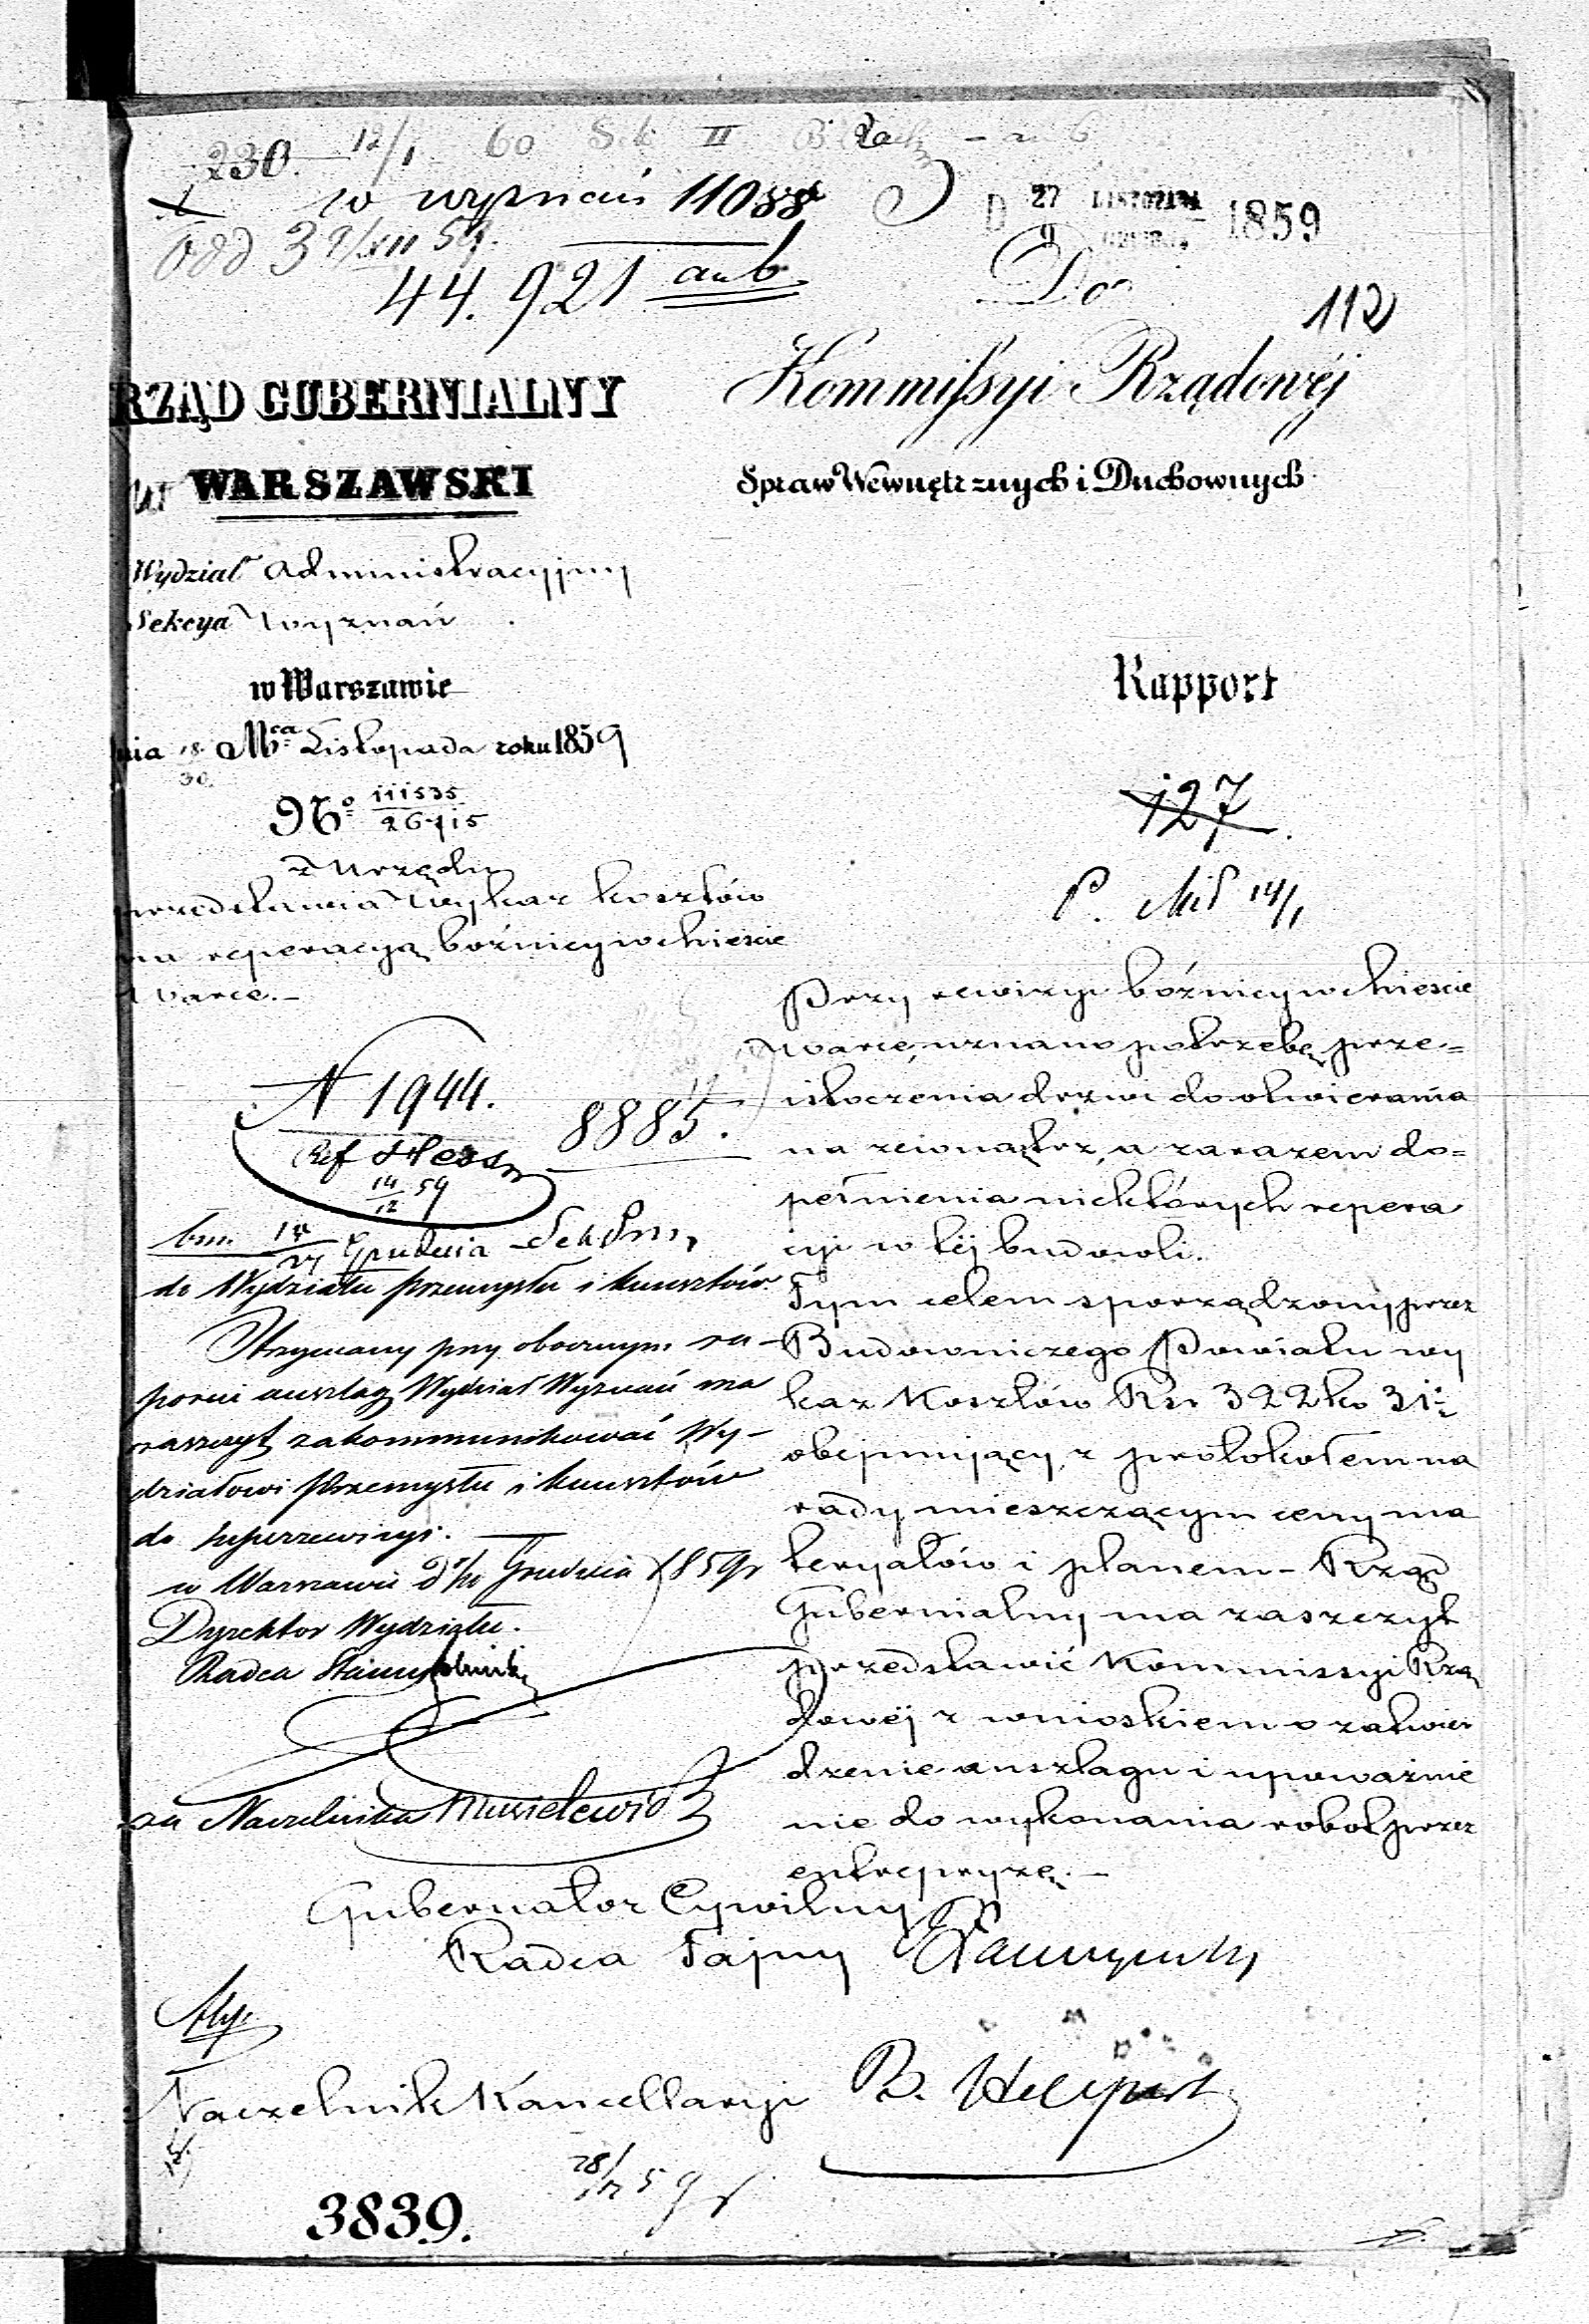 230. 12/1 60 II
w wyznań 11088
D 27 LISTOPADA 1859
9
Odd 3 9/XII 59.
44. 921
Do
112
RZĄD GUBERNIALNY
WARSZAWSKI
Kommissyi Rządowéj
Spraw Wewnętrznych i Duchownych
Wydział Administracyjny
Sekcya Wyznań
w Warszawie
nia 18/30 Mca Listopada roku 1859
No 111535/26715
Rapport
127
z Urzędu
przedstawia wykaz kosztów
na reperacyą bóżnicy w Mieście
Warce.-
14/1
Przy rewizyi bóźnicy w Mieście
Warce, uznano potrzebę prze=
istoczenia drzwi do otwierania
na zewnątrz, a zarazem do=
pełnienia niektórych repera
cyi w téj budowli.
Tym celem sporządzony przez
Budowniczego Powiatu wy
kaz Kosztów Rs 322 ko 31
obejmujący, z protokołem na
rady mieszczącym ceny ma
teryałów i planem - Rząd
Gubernialny ma zaszczyt
przedstawić Kommissyi Rzą
dowéj z wnioskiem o zatwier
dzenie anszlagu i upoważnie
nie do wykonania robot przez
entrepryzę.-
N 1944.
Ref Hess
14/12 59
8885.
Grudnia
do Wydziału przemysłu i kunsztów.
Otrzymany przy obocznym ra-
porcie anszlag Wydział Wyznań ma
zaszczyt zakommunikować Wy-
działowi Przemysłu i kunsztów
do superrewizyi.
w Warszawie d Grudnia 1859 r
Dyrektor Wydziału.
Radca Stanu
za Naczelnika
Gubernator Cywilny
Radca Tajny
Naczelnik Kancellaryi B.
28/12 59 r
3839.